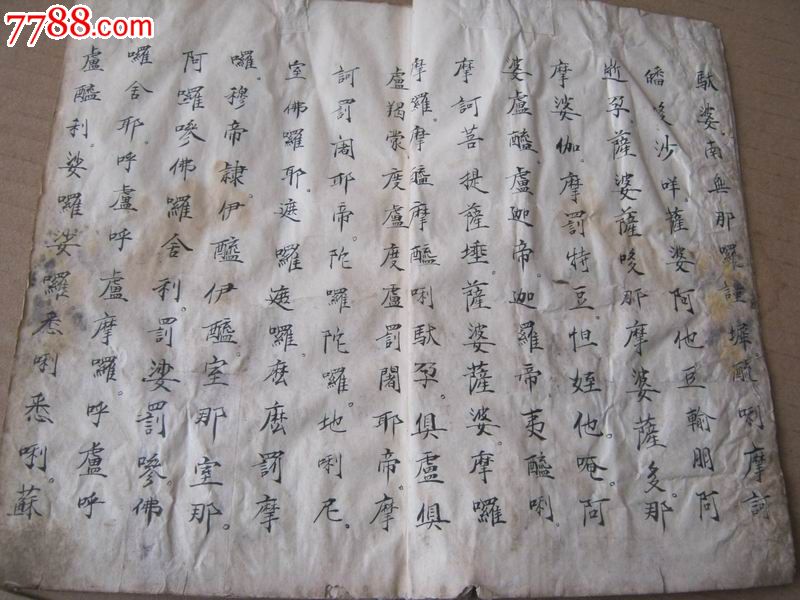 7788.com
馱婆。南無那囉謹墀。醯唎摩訶
皤哆沙咩。薩婆阿他豆輸朋。阿
逝孕。薩婆薩哆那摩婆薩多。那
摩婆伽。摩罰特豆。怛姪他。唵。阿
婆盧醯。盧迦帝。迦羅帝。夷醯唎。
摩訶菩提薩埵。薩婆薩婆。摩囉
摩羅。摩醯摩醯唎馱孕。俱盧俱
盧羯蒙。度盧度盧罰闍耶帝。摩
訶罰闍耶帝。陀羅陀羅。地唎尼
室佛囉耶。遮羅遮囉。麽麽罰摩
囉。穆帝隸。伊醯伊醯。室那室那。
阿囉嘇佛囉舍利。罰娑罰嘇。佛
囉舍耶。呼盧呼盧摩囉。呼盧呼
盧醯利。娑囉娑囉悉唎悉唎。蘇